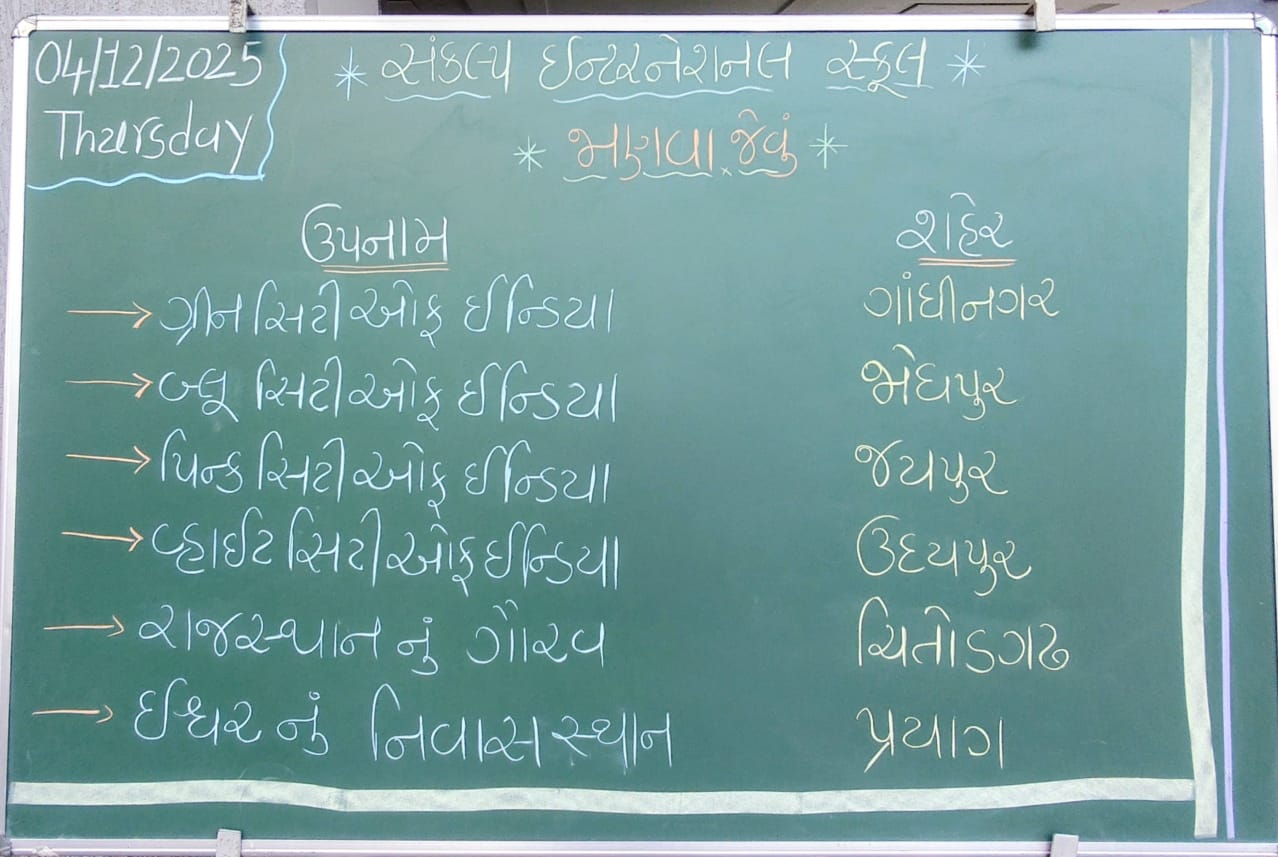 04/12/2025
Thursday
* સંકલ્પ ઈન્ટરનેશનલ સ્કૂલ *
* ભણવા જેવું *
ઉપનામ શહેર
→ ગ્રીન સિટી ઓફ ઈન્ડિયા ગાંધીનગર
→ બ્લૂ સિટી ઓફ ઈન્ડિયા જોધપુર
→ પિન્ક સિટી ઓફ ઈન્ડિયા જયપુર
→ વ્હાઈટ સિટી ઓફ ઈન્ડિયા ઉદયપુર
→ રાજસ્થાન નું ગૌરવ ચિતોડગઢ
→ ઈશ્વર નું નિવાસ સ્થાન પ્રયાગ